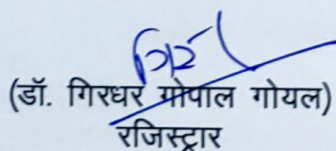 (डॉ. गिरधर गोपाल गोयल)
रजिस्ट्रार